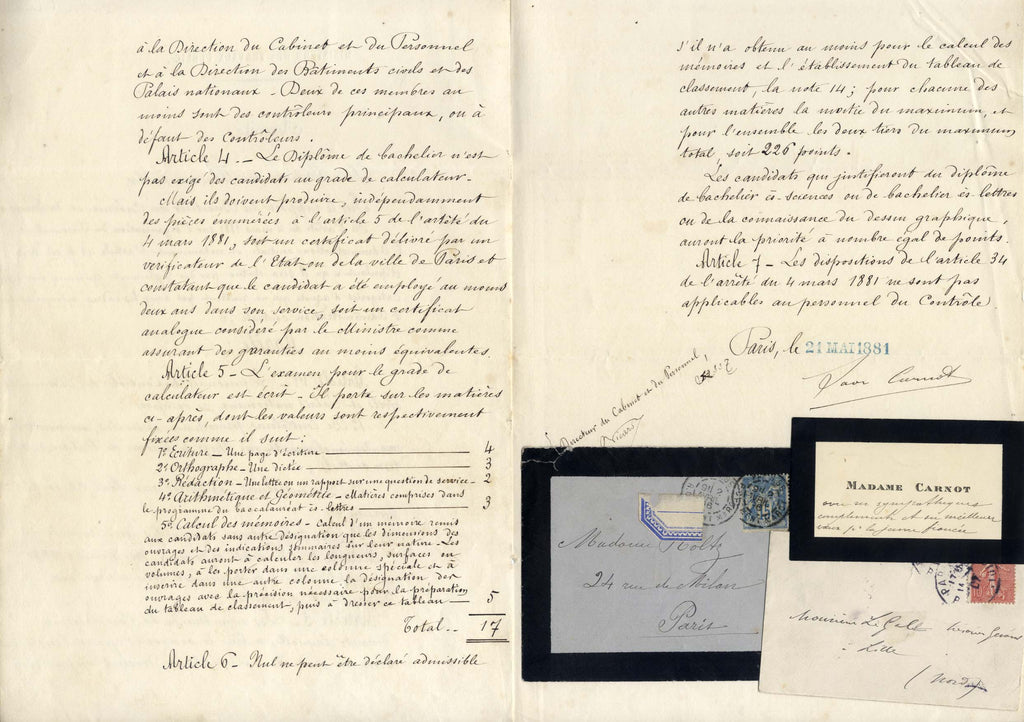 à la Direction du Cabinet et du Personnel
et à la Direction des Bâtiments civils et des
Palais nationaux - Deux de ces membres au
moins sont des contrôleurs principaux, ou à
défaut des Contrôleurs.
Article 4 - Le Diplôme de bachelier n'est
pas exigé des candidats au grade de calculateur -
Mais ils doivent produire, indépendamment
des pièces enumérées à l'article 5 de l'arrêté du
4 mars 1881, soit un certificat délivré par un
vérificateur de l'Etat ou de la ville de Paris et
constatant que le candidat a été employé au moins
deux ans dans son service, soit un certificat
analogue considéré par le Ministre comme
assurant des garanties au moins équivalentes.
Article 5 - L'examen pour le grade de
calculateur est écrit - Il porte sur les matières
ci-après, dont les valeurs sont respectivement
fixées comme il suit :
1º Ecriture - Une page d'écriture 4
2º Orthographe - Une dictée 3
3º Rédaction - Une lettre ou un rapport sur une question de service - 2
4º Arithmétique et Géométrie - Matières comprises dans
le programme du baccalauréat ès-lettres 3
5º Calcul des mémoires - Calcul d'un mémoire remis
aux candidats sans autre désignation que les dimensions des
ouvrages et des indications sommaires sur leur nature. Les
candidats auront à calculer les longueurs, surfaces ou
volumes, à les porter dans une colonne spéciale et à
inscrire dans une autre colonne la désignation des
ouvrages avec la précision nécessaire pour la préparation
du tableau de classement, puis à dresser ce tableau 5
Total.. 17
Article 6 - Nul ne peut être déclaré admissible
s'il n'a obtenu au moins pour le calcul des
mémoires et l'établissement du tableau de
classement, la note 14; pour chacune des
autres matières la moitié du maximum, et
pour l'ensemble les deux tiers du maximum
total soit 226 points.
Les candidats qui justifieront du diplôme
de bachelier ès-sciences ou de bachelier ès-lettres
ou de la connaissance du dessin graphique,
auront la priorité à nombre égal de points.
Article 7 - Les dispositions de l'article 34
de l'arrêté du 4 mars 1881 ne sont pas
applicables au personnel du Contrôle
Paris, le 21 MAI 1881
Carnot
Directeur du Cabinet et du Personnel,
MADAME CARNOT
avec sympathiques
compliments et ses meilleurs
vœux p. la jeune fiancée
Madame Holtz
24 rue de Milan
Paris
Monsieur Le Gall
à Lille
(Nord)